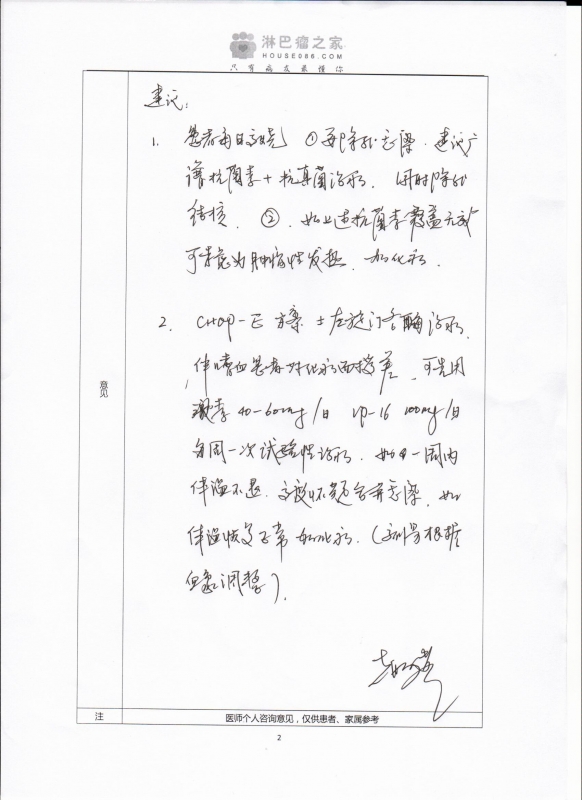 淋巴瘤之家
HOUSE086.COM
只有病友最懂你
建议:
1. 患者每日高烧 ① 要除外感染. 建议广
谱抗菌素 + 抗真菌治疗. 同时除外
结核. ② 如上述抗菌素覆盖无效
可考虑为肿瘤性发热. 如化疗.
2. CHOP-E 方案 ± 左旋门冬酰胺酶治疗.
伴嗜血患者对化疗耐受差, 可先用
激素 40-60mg/日 VP-16 100mg/日
每周一次试验性治疗. 如一周内
体温不退. 高度怀疑合并感染. 如
体温恢复正常如化疗. (剂量根据
血象调整).
意见
注
医师个人咨询意见,仅供患者、家属参考
2